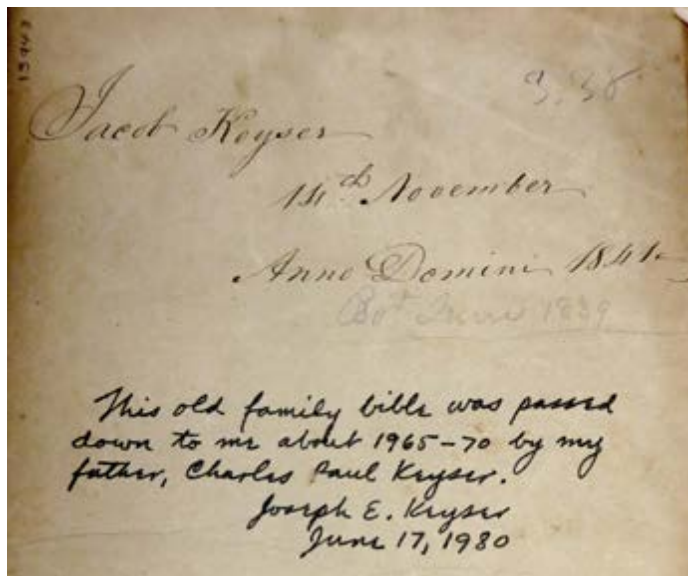 Jacob Keyser
14th November
Anno Domini 1841
1839
This old family bible was passed
down to me about 1965-70 by my
father, Charles Paul Keyser.
Joseph E. Keyser
June 17, 1980